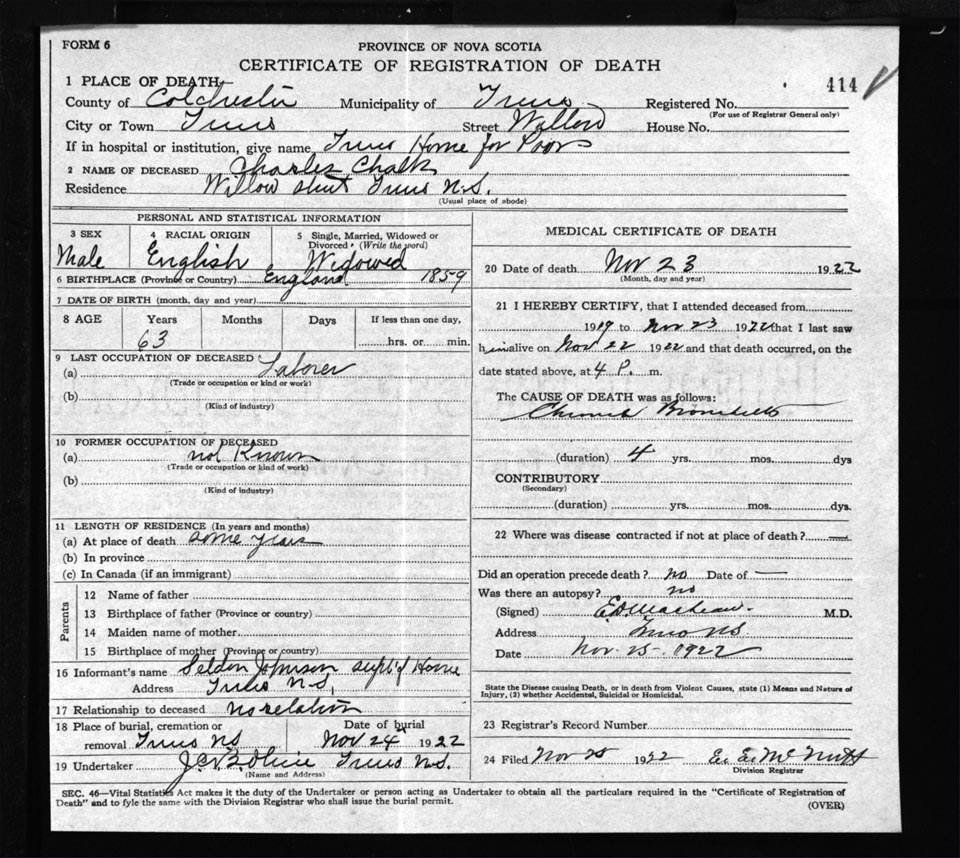 FORM 6
PROVINCE OF NOVA SCOTIA
CERTIFICATE OF REGISTRATION OF DEATH
414
1 PLACE OF DEATH—
County of Colchester Municipality of Truro Registered No.
(For use of Registrar General only)
City or Town Truro Street Willow House No.
If in hospital or institution, give name Truro Home for Poor
2 NAME OF DECEASED Charles Chalk
Residence Willow street Truro N.S.
(Usual place of abode)
PERSONAL AND STATISTICAL INFORMATION
3 SEX 4 RACIAL ORIGIN 5 Single, Married, Widowed or Divorced (Write the word)
Male English Widowed
6 BIRTHPLACE (Province or Country) England 1859
7 DATE OF BIRTH (month, day and year)
8 AGE Years Months Days If less than one day,
63 hrs. or min.
9 LAST OCCUPATION OF DECEASED
(a) Laborer
(Trade or occupation or kind or work)
(b)
(Kind of industry)
10 FORMER OCCUPATION OF DECEASED
(a) not Known
(Trade or occupation or kind of work)
(b)
(Kind of industry)
11 LENGTH OF RESIDENCE (In years and months)
(a) At place of death some years
(b) In province
(c) In Canada (if an immigrant)
Parents
12 Name of father
13 Birthplace of father (Province or country)
14 Maiden name of mother
15 Birthplace of mother (Province or country)
16 Informant's name Seldon Johnson supt of Home
Address Truro N.S.
17 Relationship to deceased no relation
18 Place of burial, cremation or Date of burial
removal Truro NS Nov 24 1922
19 Undertaker Truro N.S.
(Name and Address)
MEDICAL CERTIFICATE OF DEATH
20 Date of death Nov 23 1922
(Month, day and year)
21 I HEREBY CERTIFY, that I attended deceased from
1919 to Nov 23 1922 that I last saw
him alive on Nov 22 1922 and that death occurred, on the
date stated above, at 4 P. m.
The CAUSE OF DEATH was as follows:
Chronic Bronchitis
(duration) 4 yrs. mos. dys
CONTRIBUTORY
(Secondary)
(duration) yrs. mos. dys.
22 Where was disease contracted if not at place of death? —
Did an operation precede death? no Date of —
Was there an autopsy? no
(Signed) M.D.
Address Truro NS
Date Nov. 25 - 1922
State the Disease causing Death, or in death from Violent Causes, state (1) Means and Nature of
Injury, (2) whether Accidental, Suicidal or Homicidal.
23 Registrar's Record Number
24 Filed Nov 25 1922 E. E. McNutt
Division Registrar
SEC. 46—Vital Statistics Act makes it the duty of the Undertaker or person acting as Undertaker to obtain all the particulars required in the "Certificate of Registration of
Death" and to fyle the same with the Division Registrar who shall issue the burial permit.
(OVER)